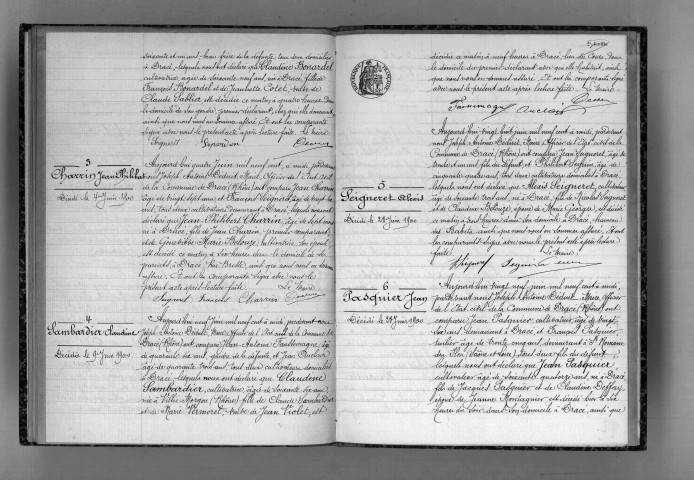 soixante et un ans, beau frère de la défunte, tous deux domiciliés
à Dracé, lesquels nous ont déclaré que Claudine Bonardel
cultivatrice, âgée de soixante neuf ans, née à Dracé, fille de
François Bonardel et de Jeannette Colet, veuve de
Claude Sablier est décédée ce matin, à quatre heures dans
le domicile de son gendre, premier déclarant, chez qui elle demeurait
ainsi que nous nous en sommes assuré. Et ont les comparants
signé avec nous le présent acte après lecture faite. Le Maire
3
Charrin Jean Philibert
Décédé le 4 Juin 1900
Aujourd'hui quatre Juin mil neuf cent, à midi, pardevant
nous Joseph Antoine Déduit, Maire, Officier de l'état Civil
de la Commune de Dracé (Rhône) ont comparu Jean Charrin
âgé de vingt sept ans et François
ans, tout deux cultivateurs demeurant à Dracé, lesquels nous ont
déclaré que Jean Philibert Charrin, âgé de
né à Dracé, fils de Jean Charrin, premier comparant
et de Marie Belouze, cultivatrice, son épouse
est décédé ce matin, à six heures dans le domicile de ses
parents, à Dracé, ainsi que nous nous en sommes
assuré. Et ont les comparants signé avec nous le
présent acte après lecture faite. Le Maire
François Charrin
4
Sambardier Claudine
Décédée le 9 Juin 1900
Aujourd'hui neuf Juin mil neuf cent à midi, pardevant nous
Joseph Antoine Déduit, Maire Officier de l'état Civil de la Commune de
Dracé (Rhône) ont comparu Antoine âgé
de quarante six ans, gendre de la défunte, et Jean Auclair
âgé de quarante trois ans, tout deux cultivateurs domiciliés
à Dracé, lesquels nous ont déclaré que Claudine
Sambardier, cultivatrice, âgée de soixante six ans
née à Villié Morgon (Rhône) fille de Claude Sambardier
et de Marie Vermorel, veuve de Jean Violet, est
décédée ce matin, à neuf heures à Dracé, lieu des
le domicile du premier déclarant avec qui elle habitait, ainsi
que nous nous en sommes assuré. Et ont les comparants signé
avec nous le présent acte après lecture faite. Le Maire
Auclair
5
Seigneret Alexis
Décédé le 21 Juin 1900
Aujourd'hui vingt un Juin mil neuf cent, à midi, pardevant
nous Joseph Antoine Déduit, Maire Officier de l'état civil de la
Commune de Dracé (Rhône) ont comparu Jean Seigneret, âgé de
trente et un ans, fils du défunt, et Philibert âgé de
cinquante quatre ans, tout deux cultivateurs domiciliés à Dracé
lesquels nous ont déclaré que Alexis Seigneret, cultivateur
âgé de soixante trois ans, né à Dracé, fils de Nicolas Seigneret
et de Claudine Belouze, époux de Marie Georges, est décédé
ce matin, à trois heures dans son domicile à Dracé, hameau
des ainsi que nous nous en sommes assuré. Et ont
les comparants signé avec nous le présent acte après lecture
faite. Le Maire
6
Pasquier Jean
Décédé le 28 Juin 1900
Aujourd'hui vingt neuf Juin mil neuf cent à midi,
pardevant nous Joseph Antoine Déduit, Maire Officier
de l'état civil de la Commune de Dracé (Rhône) ont
comparu Jean Pasquier, cultivateur, âgé de vingt
six ans, demeurant à Dracé, et François Pasquier,
âgé de trente cinq ans, demeurant à St Romain
des Iles (Saône et Loire) tout deux fils du défunt
lesquels nous ont déclaré que Jean Pasquier
cultivateur âgé de soixante quatorze ans, né à Dracé
fils de Jacques Pasquier et de Claudine
époux de Jeanne Montagnier, est décédé hier à six
heures du soir dans son domicile à Dracé, ainsi que